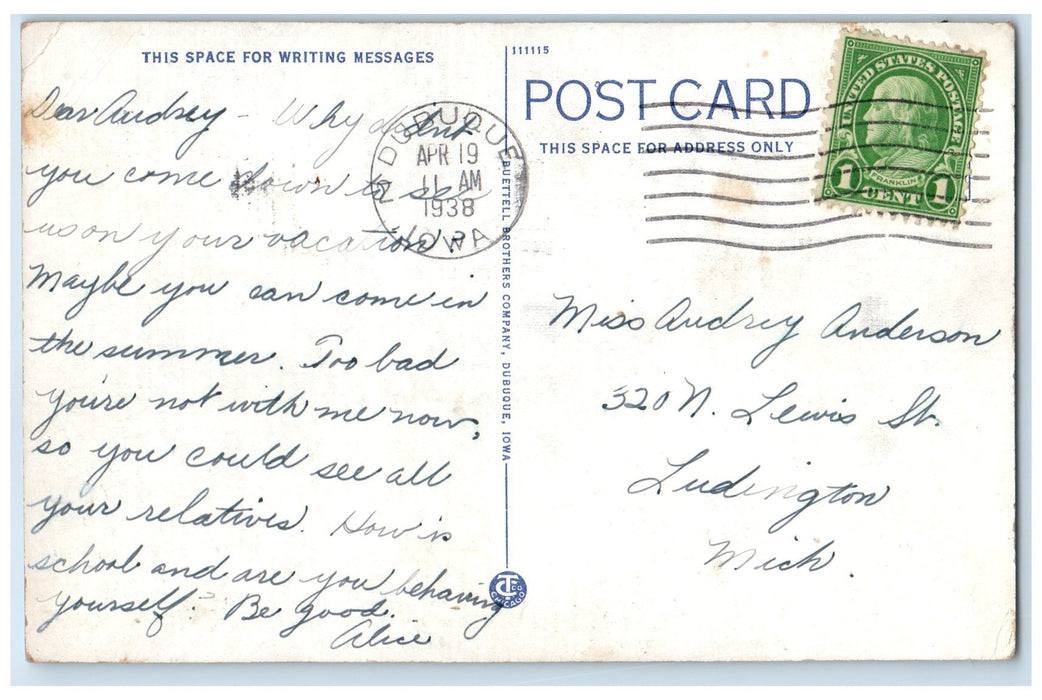 THIS SPACE FOR WRITING MESSAGES
Dear Audrey - Why don't
you come down to see
us on your vacation?
Maybe you can come in
the summer. Too bad
you're not with me now,
so you could see all
your relatives. How is
school and are you behaving
yourself? Be good.
Alice
DUBUQUE
APR 19
11 AM
1938
IOWA
BUETTELL BROTHERS COMPANY, DUBUQUE, IOWA
CT CO
CHICAGO
111115
POST CARD
THIS SPACE FOR ADDRESS ONLY
UNITED STATES POSTAGE
FRANKLIN
1 CENT 1
Miss Audrey Anderson
320 N. Lewis St.
Ludington
Mich.